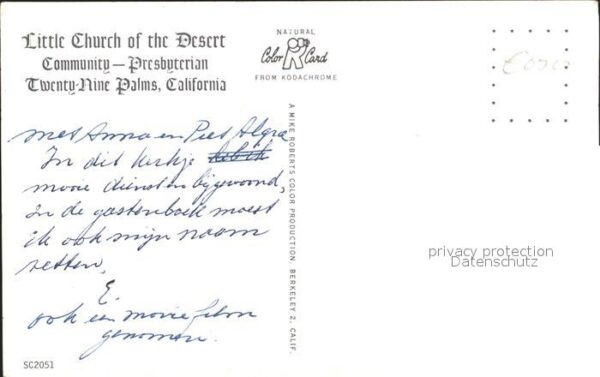 Little Church of the Desert
Community — Presbyterian
Twenty-Nine Palms, California
NATURAL
Color Card
FROM KODACHROME
met Anna en Piet Algra
In dit kerkje heb ik
mooie diensten bijgewoond,
In de gastenboek moest
ik ook mijn naam
zetten,
E.
ook een movie film
genomen.
A MIKE ROBERTS COLOR PRODUCTION. BERKELEY 2, CALIF.
privacy protection
Datenschutz
SC2051